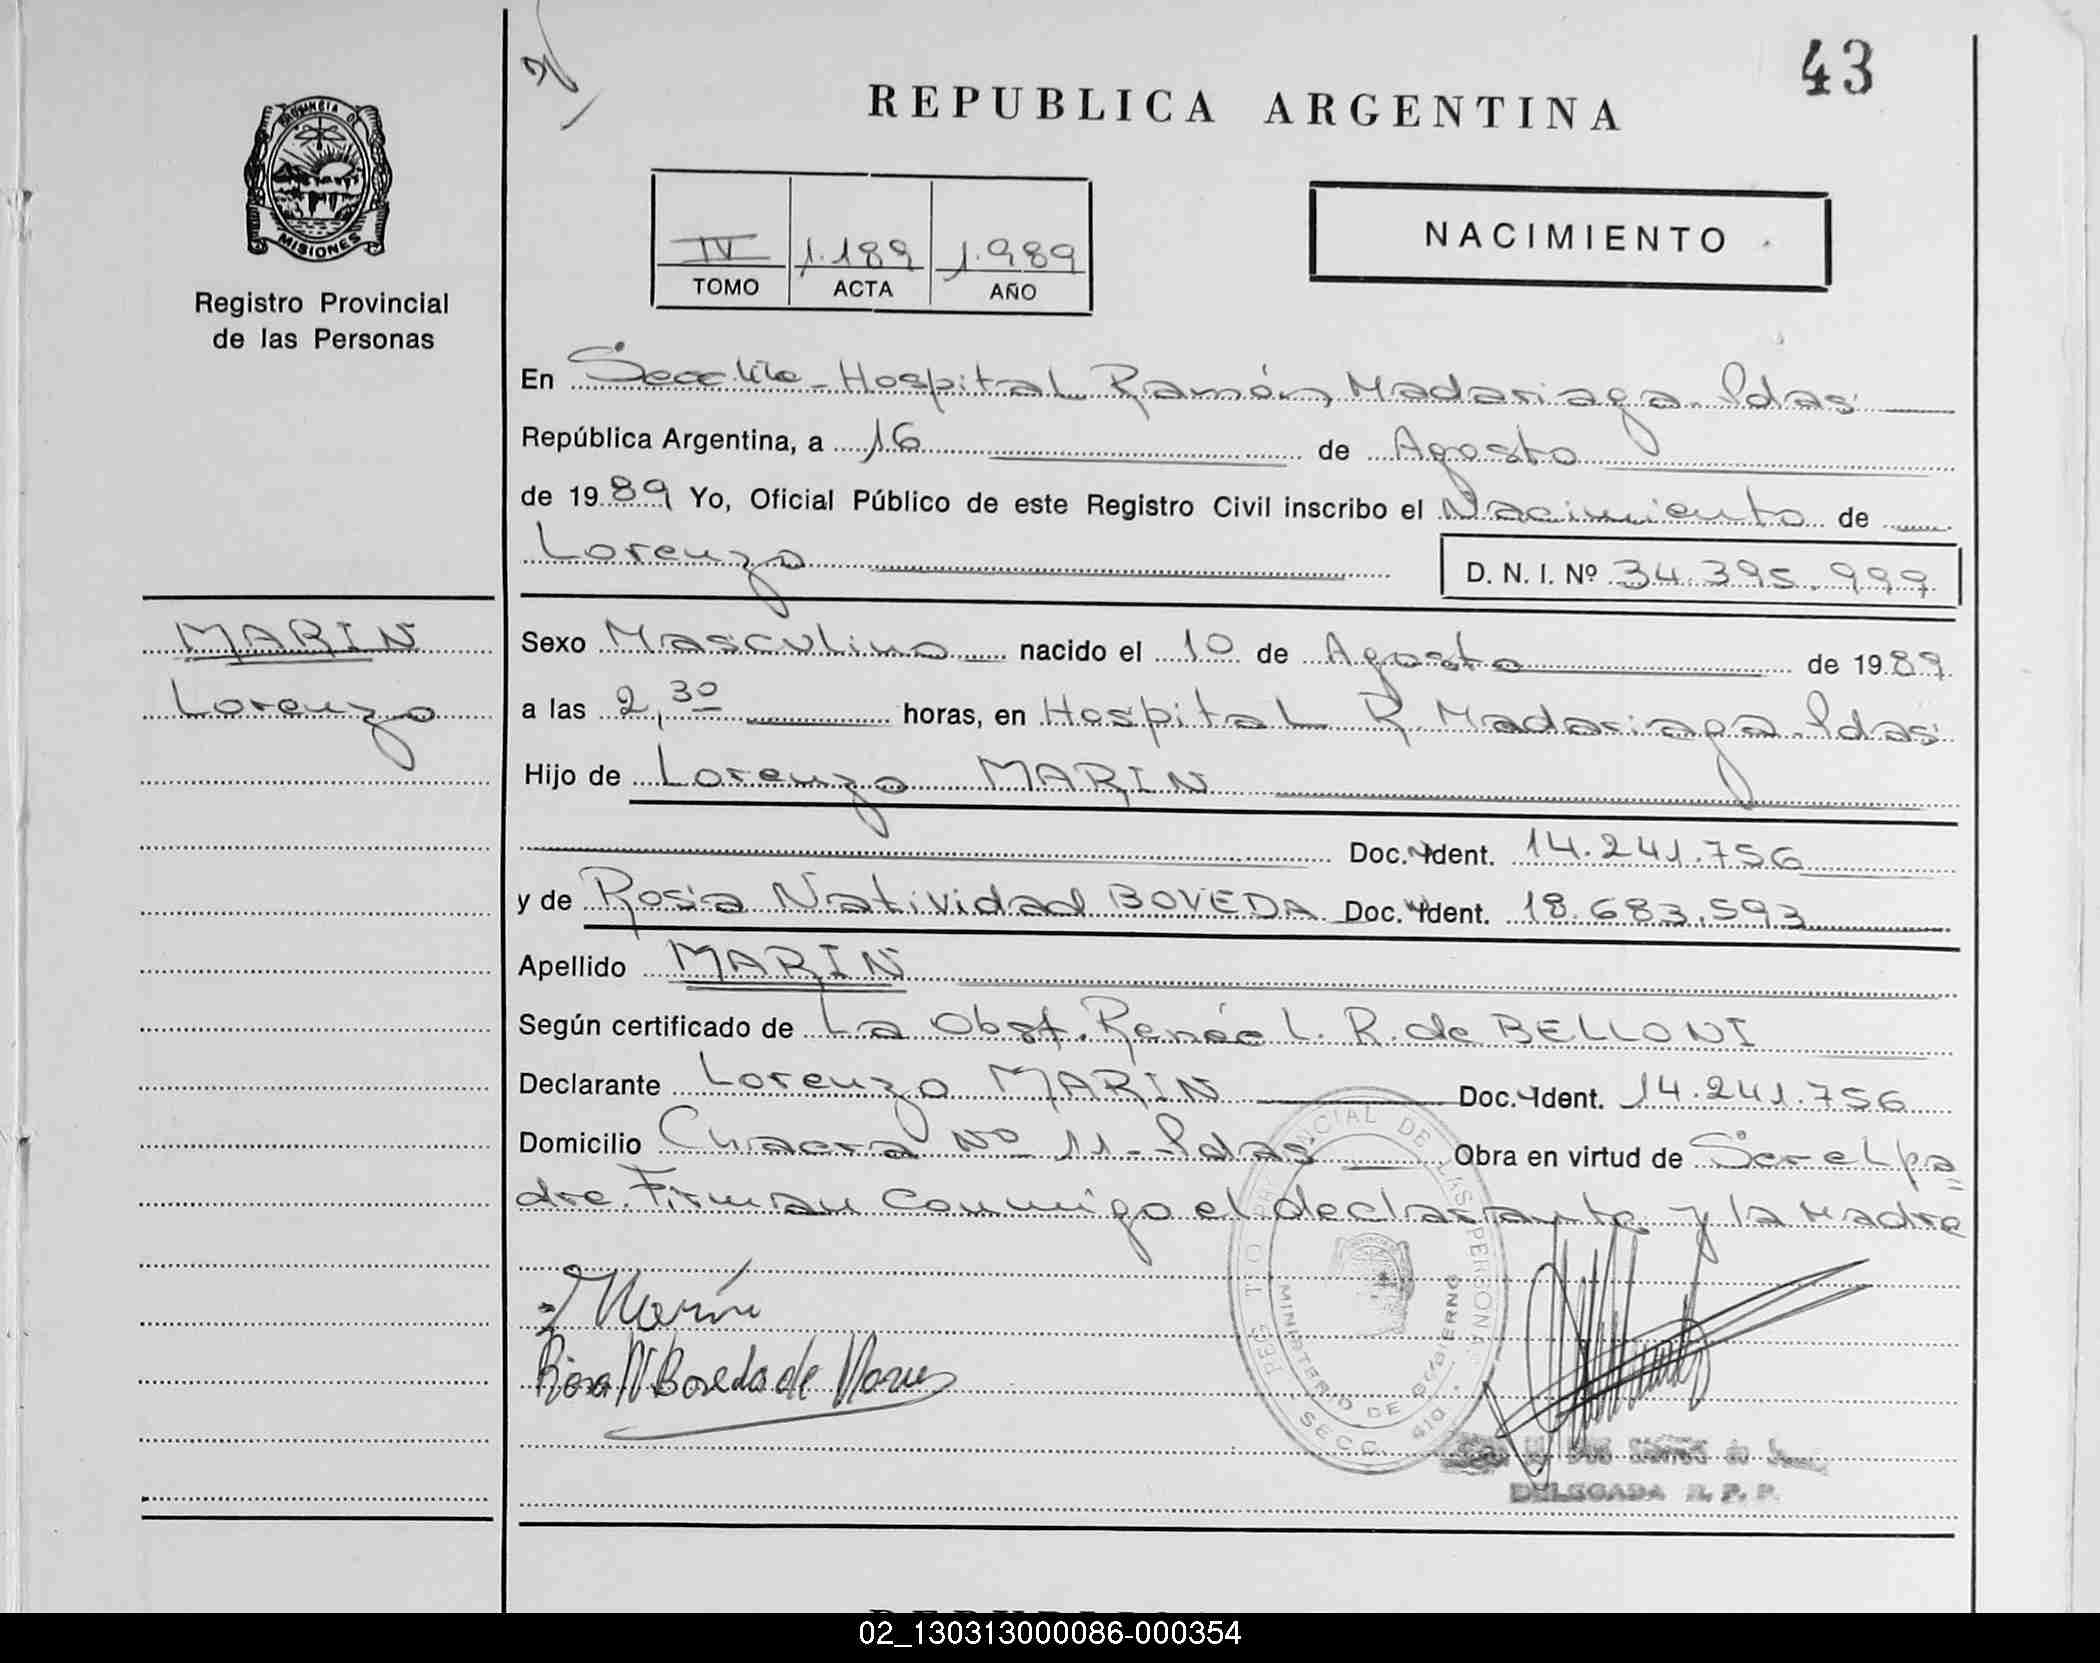 43
REPUBLICA ARGENTINA
PROVINCIA DE
MISIONES
Registro Provincial
de las Personas
IV 1.189 1.989
TOMO ACTA AÑO
NACIMIENTO
En Secc. 4ta - Hospital Ramón Madariaga. Pdas
República Argentina, a 16 de Agosto
de 1989 Yo, Oficial Público de este Registro Civil inscribo el Nacimiento de
Lorenzo D. N. I. Nº 34.395.999
MARIN
Lorenzo
Sexo Masculino nacido el 10 de Agosto de 1989
a las 2,30 horas, en Hospital R. Madariaga. Pdas
Hijo de Lorenzo MARIN
Doc. Ident. 14.241.756
y de Rosa Natividad BOVEDA Doc. Ident. 18.683.593
Apellido MARIN
Según certificado de La Obst. Renée L. R. de BELLONI
Declarante Lorenzo MARIN Doc. Ident. 14.241.756
Domicilio Chacra Nº 11 - Pdas Obra en virtud de Ser el pa=
dre. Firman conmigo el declarante y la Madre
Marín
Rosa N Boveda de Marin
REGISTRO PROVINCIAL DE LAS PERSONAS
MINISTERIO DE GOBIERNO
SECC. 4ta.
DELEGADA R. P. P.
02_130313000086-000354